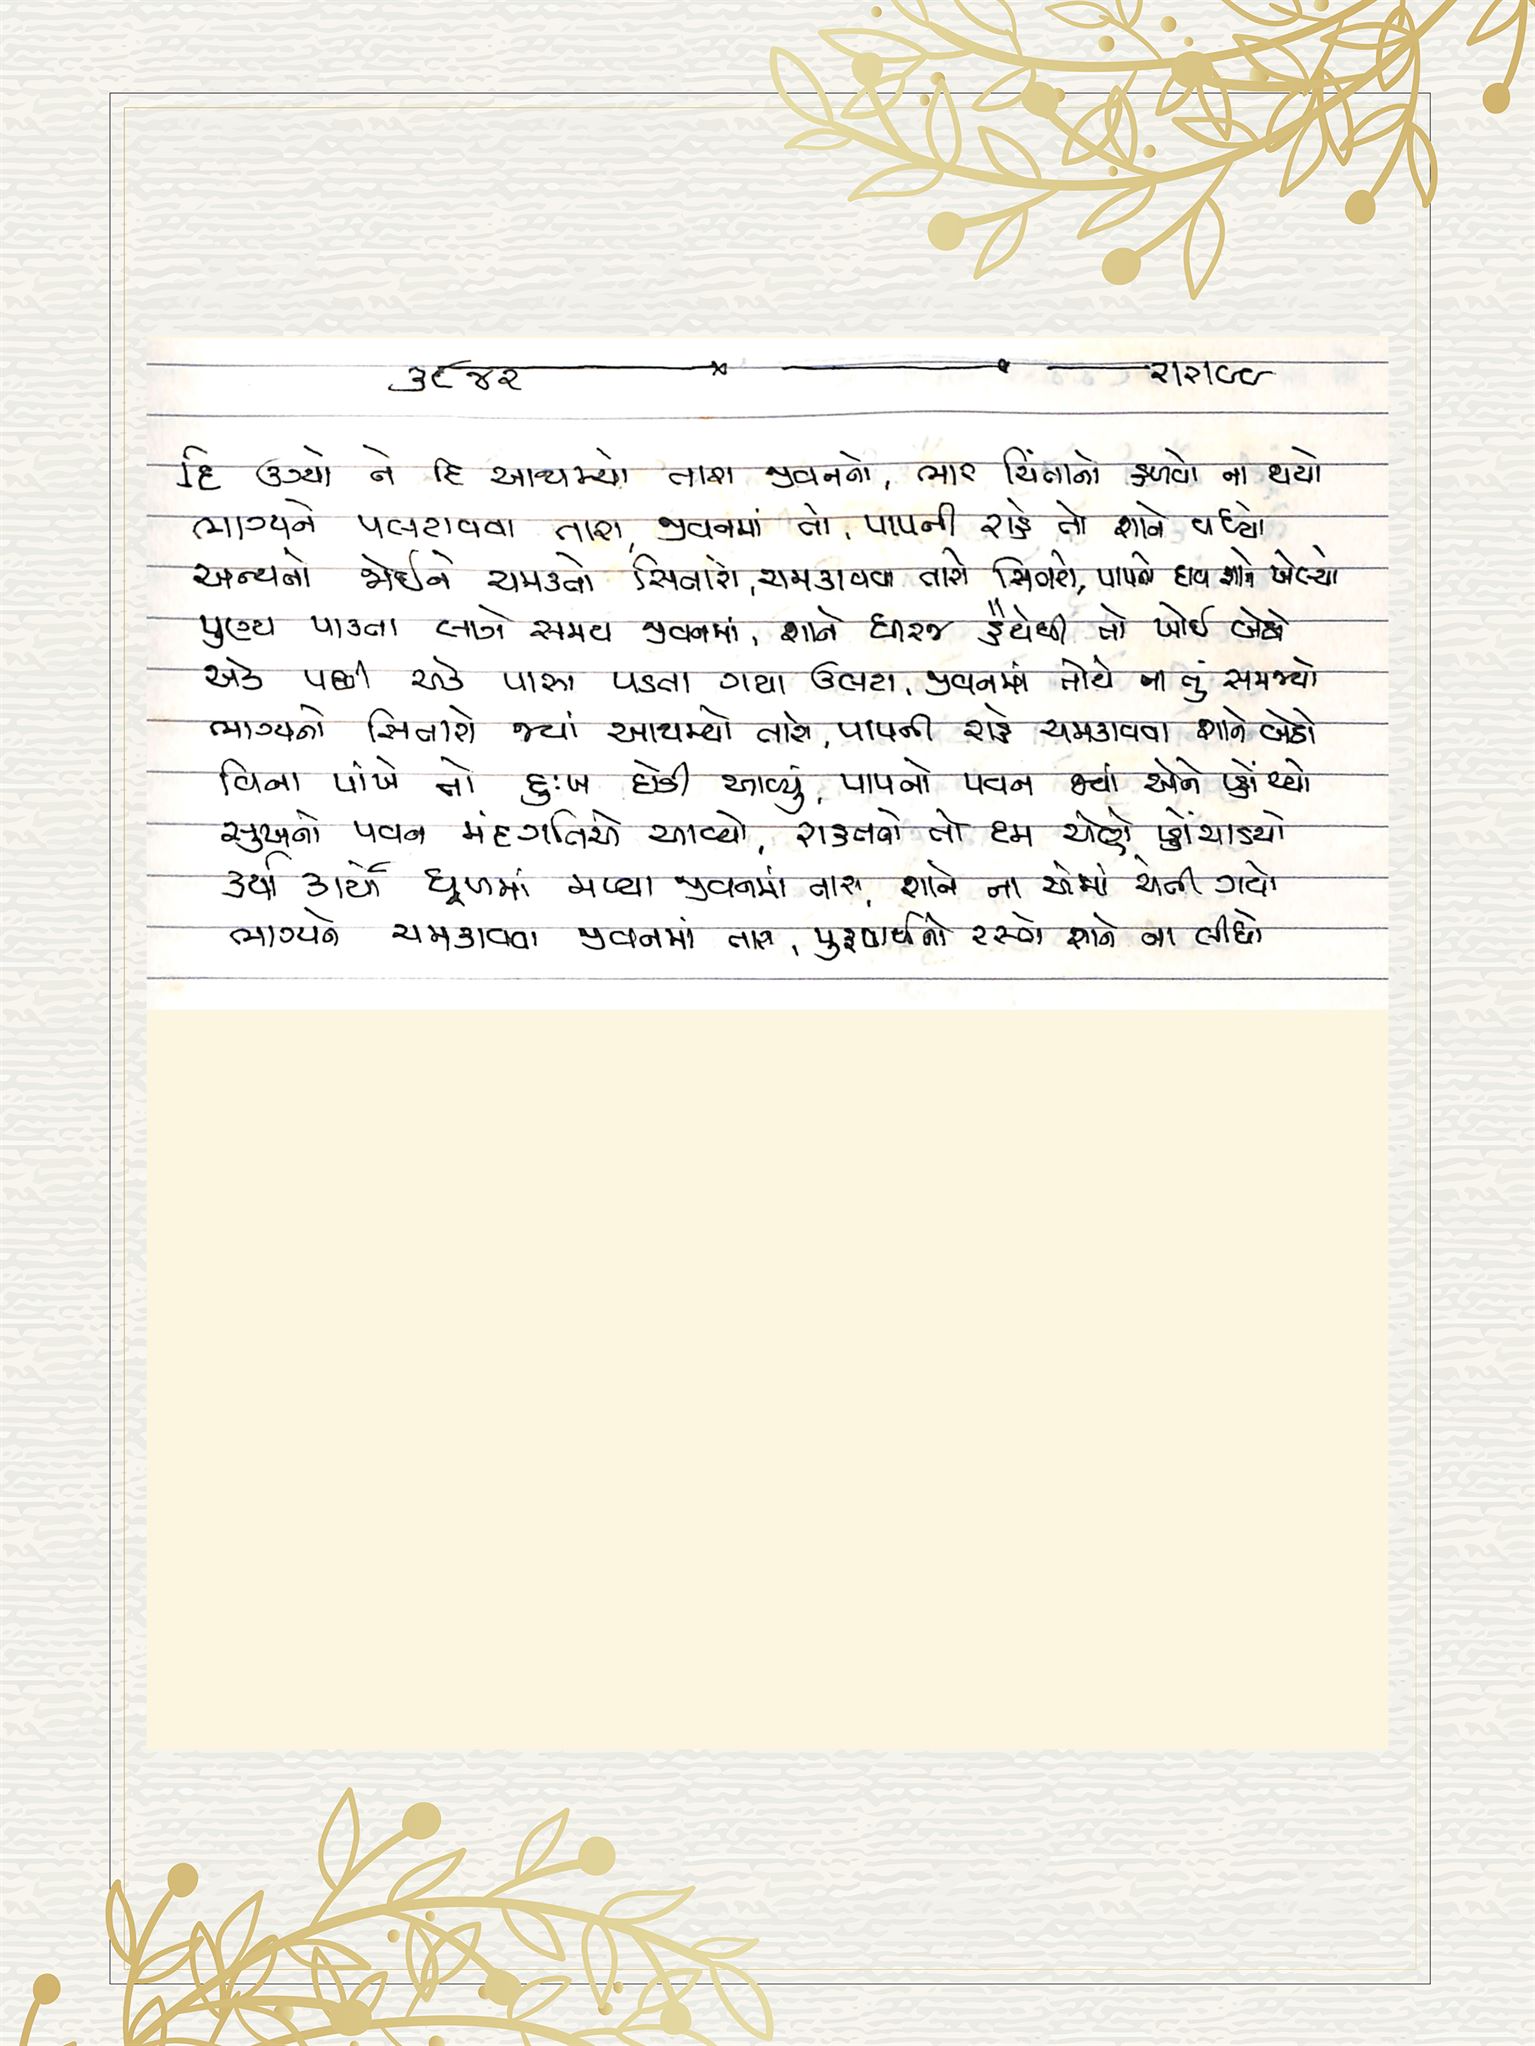 ૩૯૪૨ ૨।૨।૯૯
દિ ઉગ્યો ને દિ આથમ્યો તારા જીવનનો, ભાર ચિંતાનો હળવો ના થયો
ભાગ્યને પલટાવવા તારા, જીવનમાં તો, પાપની રાહે તો શાને વધ્યો
અન્યનો જોઈને ચમકતો સિતારો, ચમકાવવા તારો સિતારો, પાપનો દાવ શાને ખેલ્યો
પુણ્ય પાકતા લાગે સમય જીવનમાં, શાને ધીરજ હૈયેથી તો ખોઈ બેઠો
એક પછી એક પાસા પડતા ગયા ઉલટા, જીવનમાં તોયે ના તું સમજ્યો
ભાગ્યનો સિતારો જ્યાં આથમ્યો તારો, પાપની રાહે ચમકાવવા શાને બેઠો
વિના પાંખે તો દુઃખ દોડી આવ્યું, પાપનો પવન જ્યાં એને પ્હોંચ્યો
સુખનો પવન મંદગતિએ આવ્યો, રાહતનો તો દમ એણે પ્હોંચાડયો
કર્યા કાર્યો ધૂળમાં મળ્યા જીવનમાં તારા, શાને ના એમાં ચેતી ગયો
ભાગ્યને ચમકાવવા જીવનમાં તારા, પુરૂષાર્થનો રસ્તો શાને ના લીધો